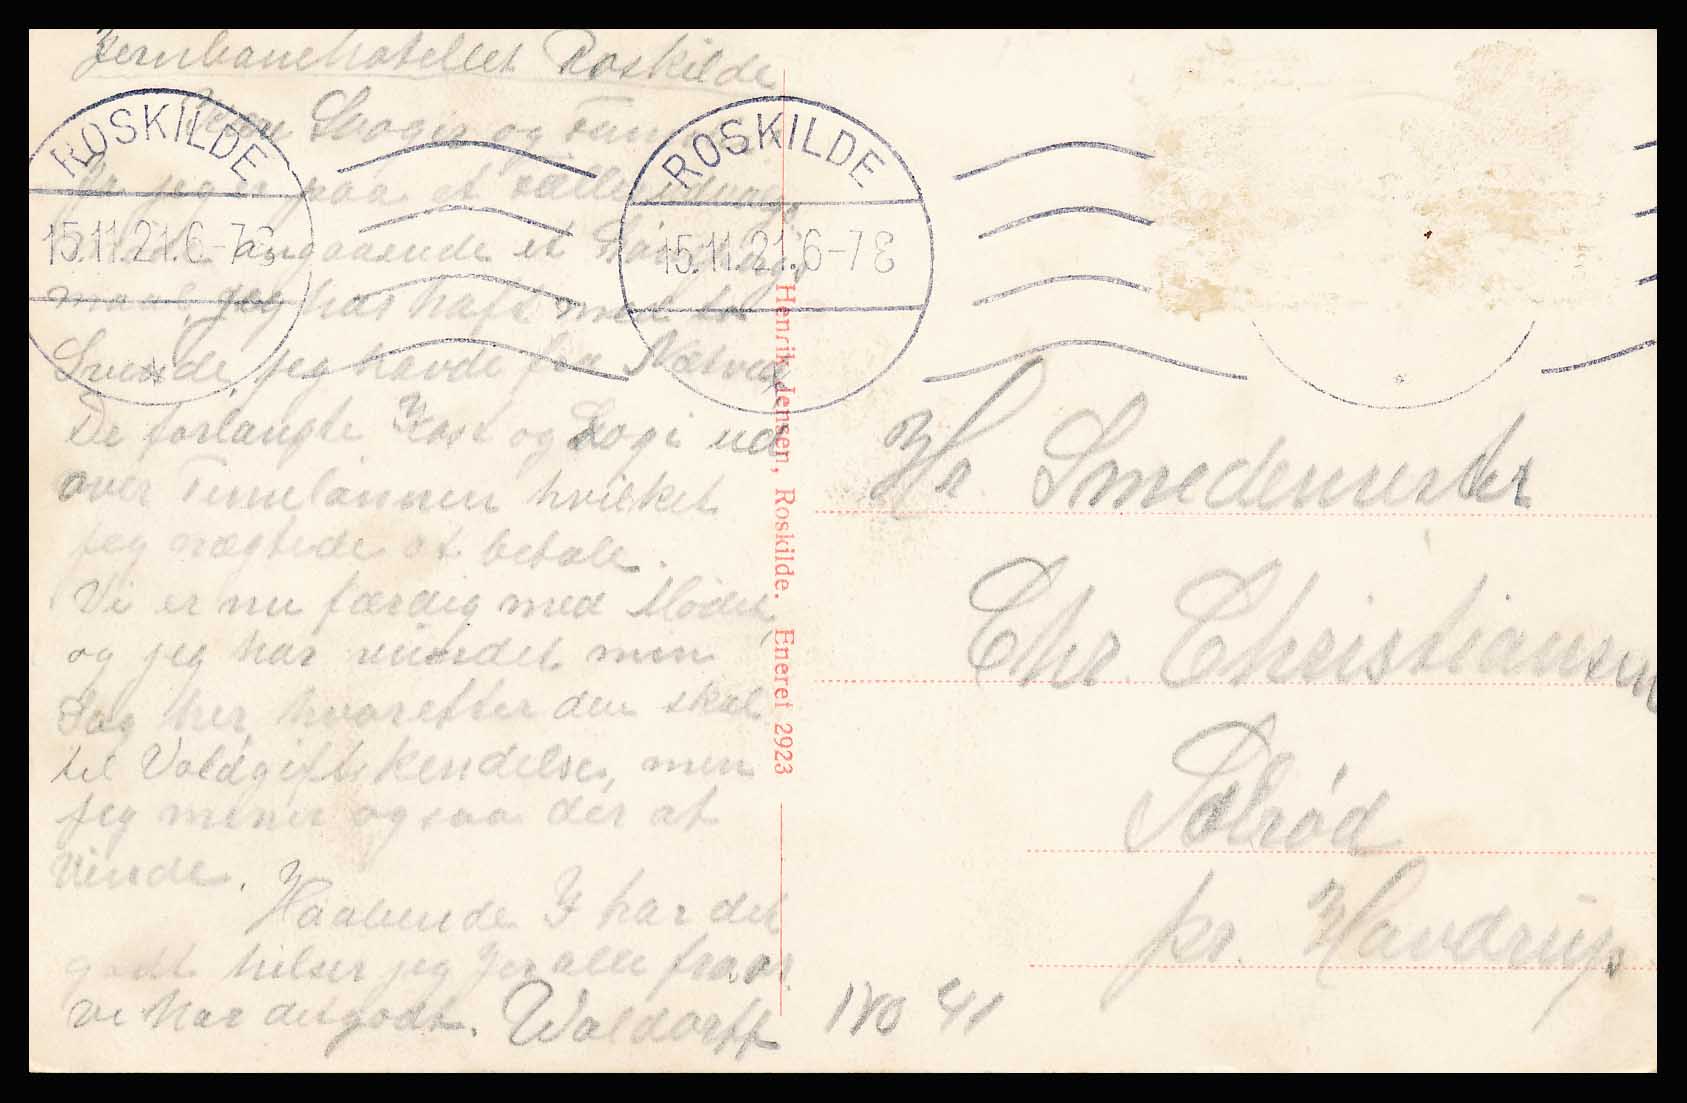 Jernbanehotellet Roskilde
og
jeg er paa et
angaaende et
jeg har haft med to
Svende, jeg havde fra Næstved
De forlangte Kost og Logi ud
over Timelønnen hvilket
jeg nægtede at betale.
Vi er nu færdig med Mødet,
og jeg har vundet min
Sag her, hvorefter den skal
til Voldgiftskendelse, men
jeg mener ogsaa der at
vinde.
Haabende I har det
godt hilser jeg Jer alle fra os.
vi har det godt. Waldorff
ROSKILDE
15.11.21. 6-7 E
ROSKILDE
15.11.21. 6-7 E
Henrik Jensen, Roskilde. Eneret 2923
Hr. Smedemester
Chr. Christiansen
Solrød
pr. Havdrup.